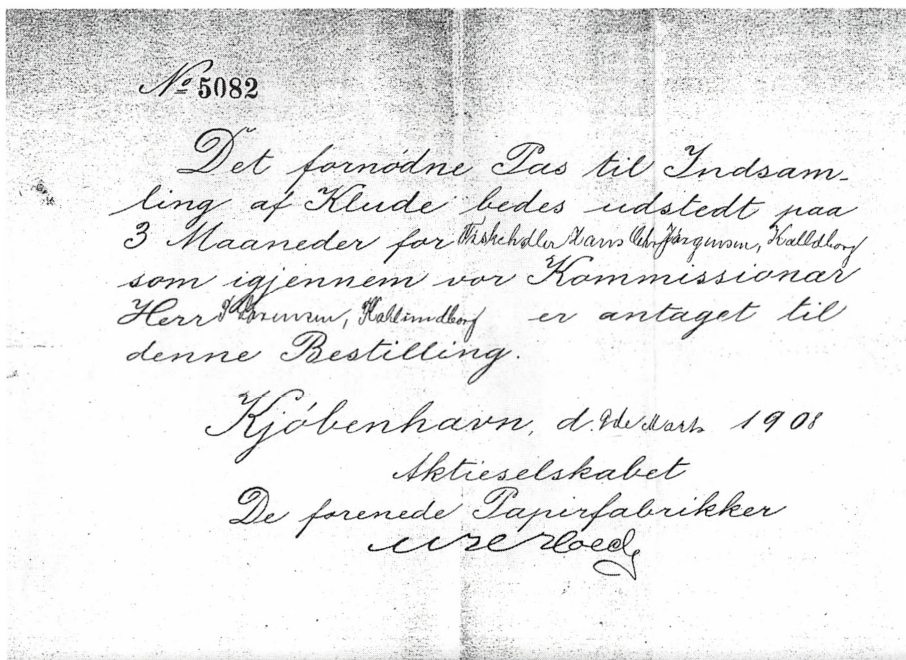 No 5082
Det fornödne Pas til Indsam-
ling af Klude bedes udstedt paa
3 Maaneder for Fiskehdler Hans Chr Jörgensen, Kalldborg
som igjennem vor Kommissionær
Herr Sörensen, Kallundborg er antaget til
denne Bestilling.
Kjöbenhavn, d. 9de Marts 1908
Aktieselskabet
De forenede Papirfabrikker